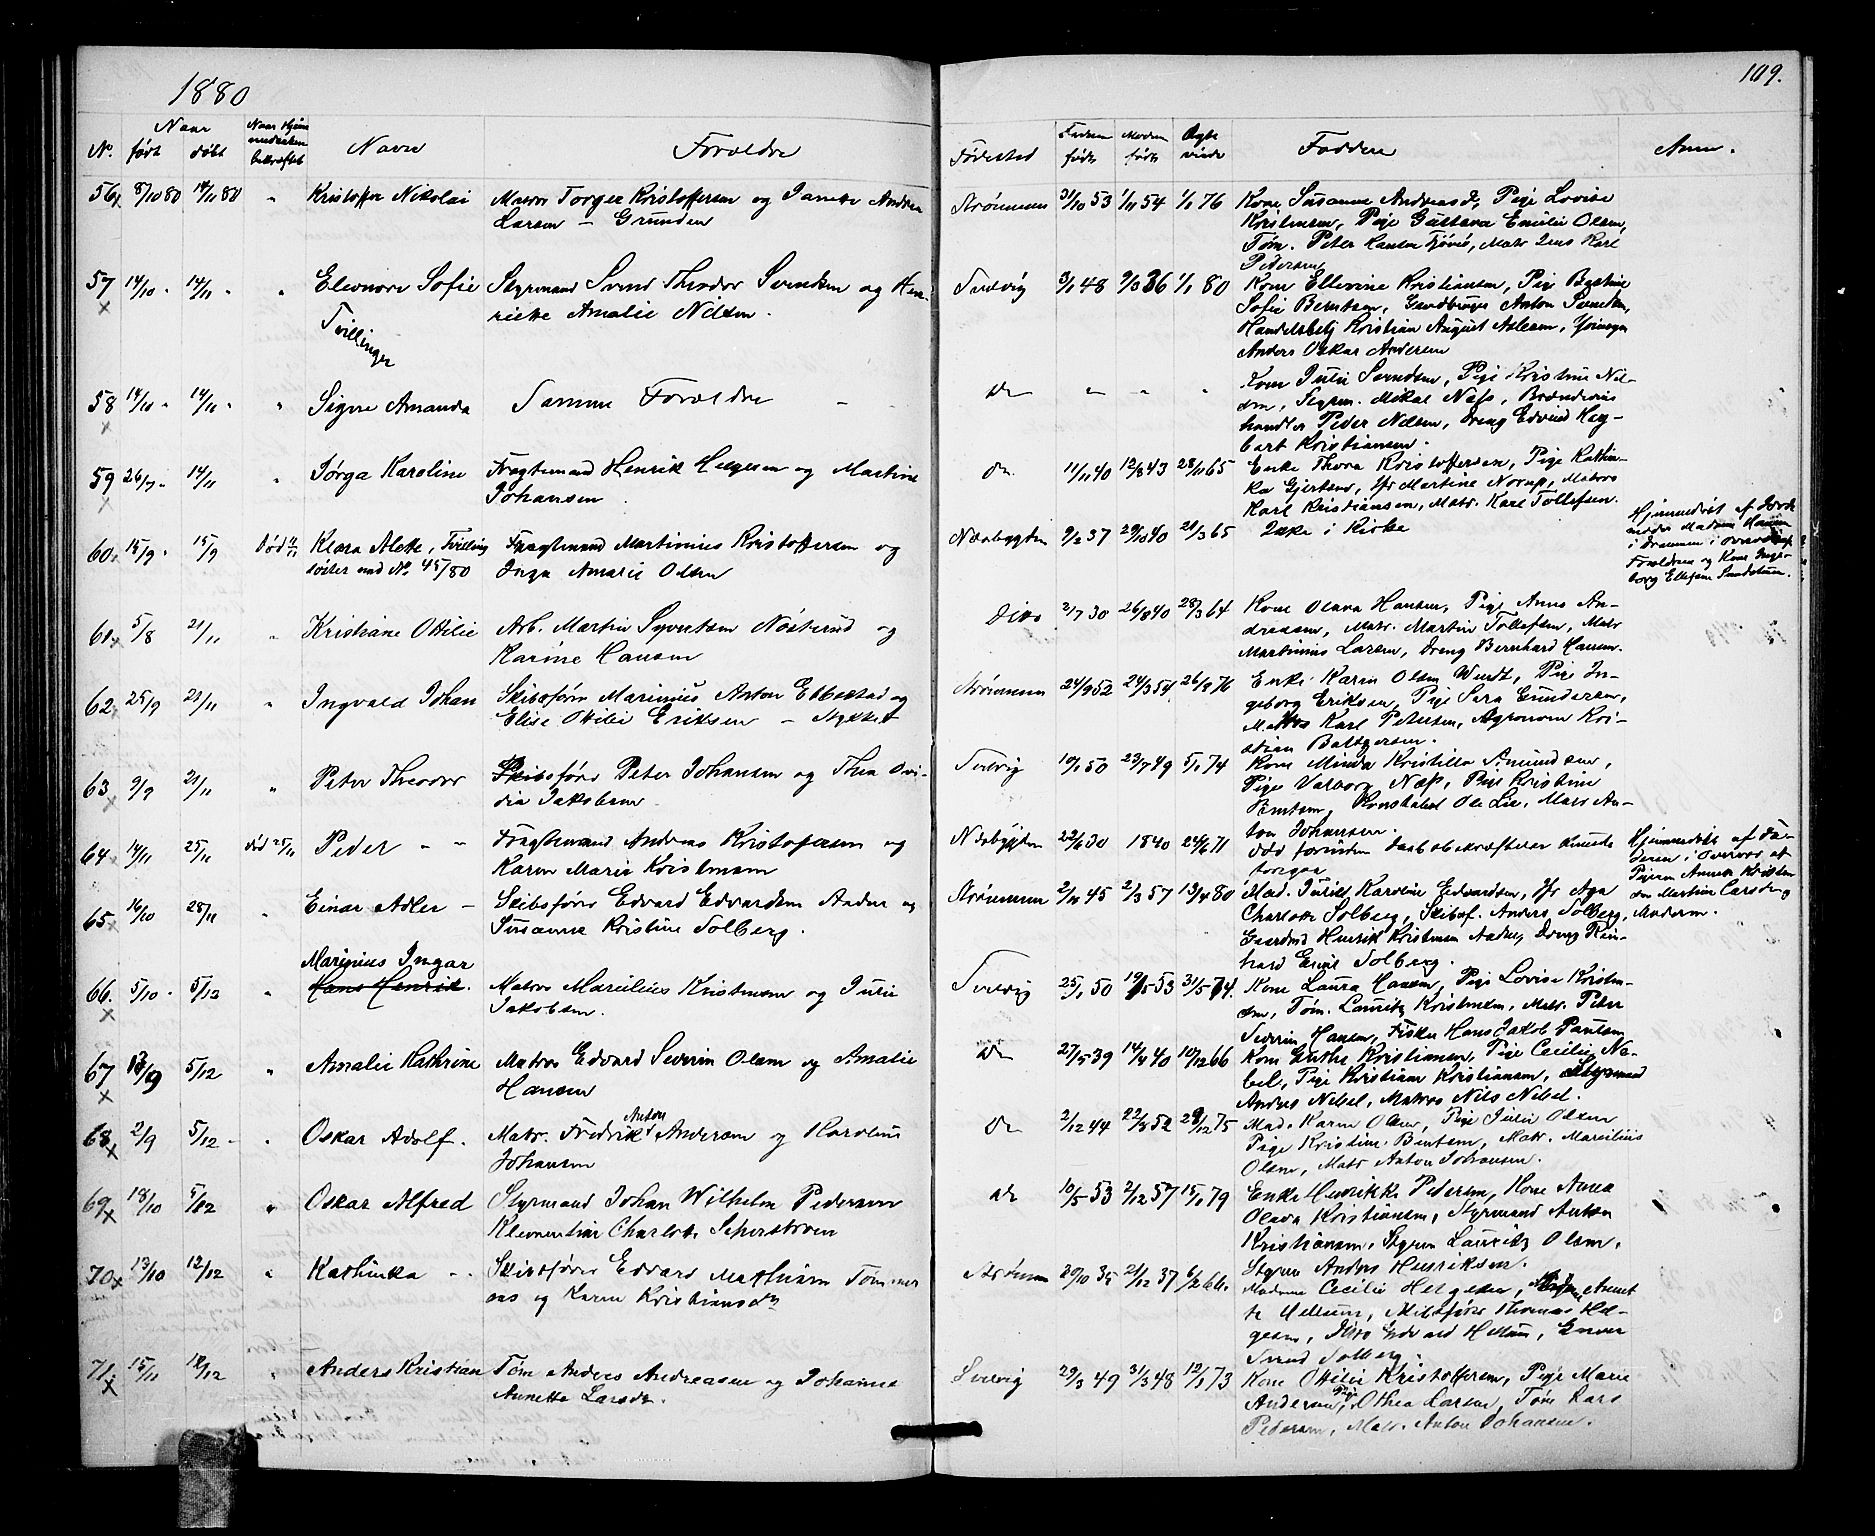 1880
109.
No. Naar født døbt Naar Hjemmedaaben bekræftet Navn Forældre Fødested Faderen født Moderen født Ægte viede Faddere Anm.
56 8/10 80 14/11 80 " Kristoffer Nikolai Matros Torger Kristoffersen og Janette Andrea
Larsen – Grunden
Strømmen 31/10 53 1/11 54 1/1 76 Kone Susanne Andreasd, Pige Lovise
Kristensen, Pige Gustava Emilie Olsen,
Tøm. Peter Hansen Tjømø, Matr Jens Karl
Pedersen
57 14/10 " 14/11 " " Eleonore Sofie Styrmand Svend Theodor Svendsen og Hen-
riette Amalie Nilsen.
Tvillinger
Svelvig 3/1 48 9/3 36 1/1 80 Kone Ellevine Kristiansen, Pige Bastine
Sofie Berntsen, Gaardbruger Anton Svendsen,
Handelsbetj Kristian August Aslesen,
Anders Oskar Andersen
58 14/10 " 14/11 " " Signe Amanda Samme Forældre
Do " " " Kone Julie Svendsen, Pige Kristine Nil-
sen, Styrm. Mikal Næss, Brændevins
handler Peder Nilsen, Dreng Edvind Hag-
bart Kristiansen.
59 26/7 " 14/11 " Jørga Karoline Fragtemand Henrik Helgesen og Martine
Johansen
Do 11/11 40 12/8 43 28/11 65 Enke Thora Kristoffersen, Pige Kathin-
ka Gjertsen, Jfr Martine Norup, Matros
Karl Kristiansen, Matr. Karl Tollefsen.
60 15/9 15/9 Død Klara Alette, Tvilling
søster med No. 45/80 Fragtemand Martinius Kristoffersen og
Inga Amarie Olsen
Næsbygden 9/2 37 29/10 40 21/3 65 Ikke i Kirke
Hjemmedøbt af Jorde
moder Madam Hansen
i Drammen i Overvær af
Forældrene og Kone Inge-
borg Ellefsen Sundstuen.
61 5/8 21/11 " Kristiane Otilie Arb. Martin Syvertsen Nøsterud og
Karine Hansen
Ditto 2/7 30 26/8 40 28/3 64 Kone Olava Hansen, Pige Anne An-
dreasen, Matr. Martin Tollefsen, Matr
Martinius Larsen, Dreng Bernhard Hansen.
62 25/9 21/11 " Ingvald Johan Skibsfører Marinius Anton Ebbestad og
Elise Otilie Eriksen –
Strømmen 24/9 52 24/3 54 26/8 76 Enke Karen Olsen Wendt, Pige In-
geborg Eriksen, Pige Sara Gundersen,
Matros Karl Petersen, Agronom Kri-
stian Baltzersen.
63 9/9 21/11 " Peter Theodor Skibsfører Peter Johansen og Thea Ovi-
dia Jakobsen
Svelvig 10/1 50 29/7 49 5/1 74 Kone Minda Kristille Amundsen,
Pige Valborg Næss, Pige Kristine
Berntsen, Konstabel Ole Lie, Matr An-
ton Johansen.
64 14/11 25/11 død 25/11 Peder " " Fragtemand Andreas Kristofersen og
Karen Marie Kristensen
Næsbygden 22/6 30 1840 24/6 71 død forinden Daabsbekræftelsen kunde
foregaa
Hjemmedøbt af Fa-
deren i Overvær af
Pigen Annea Kristen
sen Martine Larsd og
Andersen.
65 16/10 28/11 " Einar Adler – Skibsfører Edvard Edvardsen Aadne og
Susanne Kristine Solberg.
Strømmen 2/10 45 2/3 57 13/4 80 Mad. Juditt Karoline Edvardsen, Jfr Aga
Charlotte Solberg, Skibsf. Anders Solberg,
Gaardbr Henrik Kristensen Aadne, Dreng Rin-
hard Emil Solberg.
66. 5/10 " 5/12 " Marinius Ingar
Hans Henrik. Matros Marilius Kristensen og Julie
Jakobsen.
Svelvig 25/1 50 19/5 53 31/5 74. Kone Laura Hansen, Pige Lovise Kristen-
sen, Tøm. Lauritz Kristensen, Matr. Peter
Severin Hansen, Fisker Hans Jakob Paulsen
67 13/9 5/12 " Amalie Kathrine Matros Edvard Severin Olsen og Amalie
Hansen
Do 27/5 39 14/4 40 10/12 66 Kone Grethe Kristiansen, Pige Cecilie Ne-
bel, Pige Kristiane Kristiansen, Styrmand
Anders Nebel, Matros Nils Nebel.
68 2/9 5/12 " Oskar Adolf. Matr. Fredrik Anton Andersen og Karoline
Johansen
Do 2/12 44 22/8 52 29/12 75 Mad. Karen Olsen, Pige Julie Olsen
Pige Kristine Berntsen, Matr. Marcilius
Olsen, Matr Anton Johansen.
69 18/10 5/12 " Oskar Alfred Styrmand Johan Wilhelm Pedersen
Klementine Charlotte
Do 10/5 53 2/12 57 15/1 79 Enke Henrikke Pedersen, Kone Anna
Olava Kristiansen, Styrmand Anton
Kristiansen, Styrm Lauritz Olsen,
Styrm Anders Henriksen.
70 13/10 12/12 " Kathinka " Skibsfører Edvard Mathiasen Tømmer
aas og Karen Kristiansdtr
Strømmen 20/10 35 21/12 37 6/12 66. Madame Cecilie Helgesen, Annet
te Mellum, Skibsfører Thomas Hel-
gesen, Ditto Edvard Mellum, Gaver
Svend Solberg.
71. 15/11 12/12 " Anders Kristian Tøm Anders Andreasen og Johanne
Annette Larsdtr.
Svelvig 29/3 49 31/3 48 12/1 73 Kone Otilie Kristoffersen, Pige Marie
Andersen, Pige Othea Larsen, Tøm Lars
Pedersen, Matr. Anton Johansen.